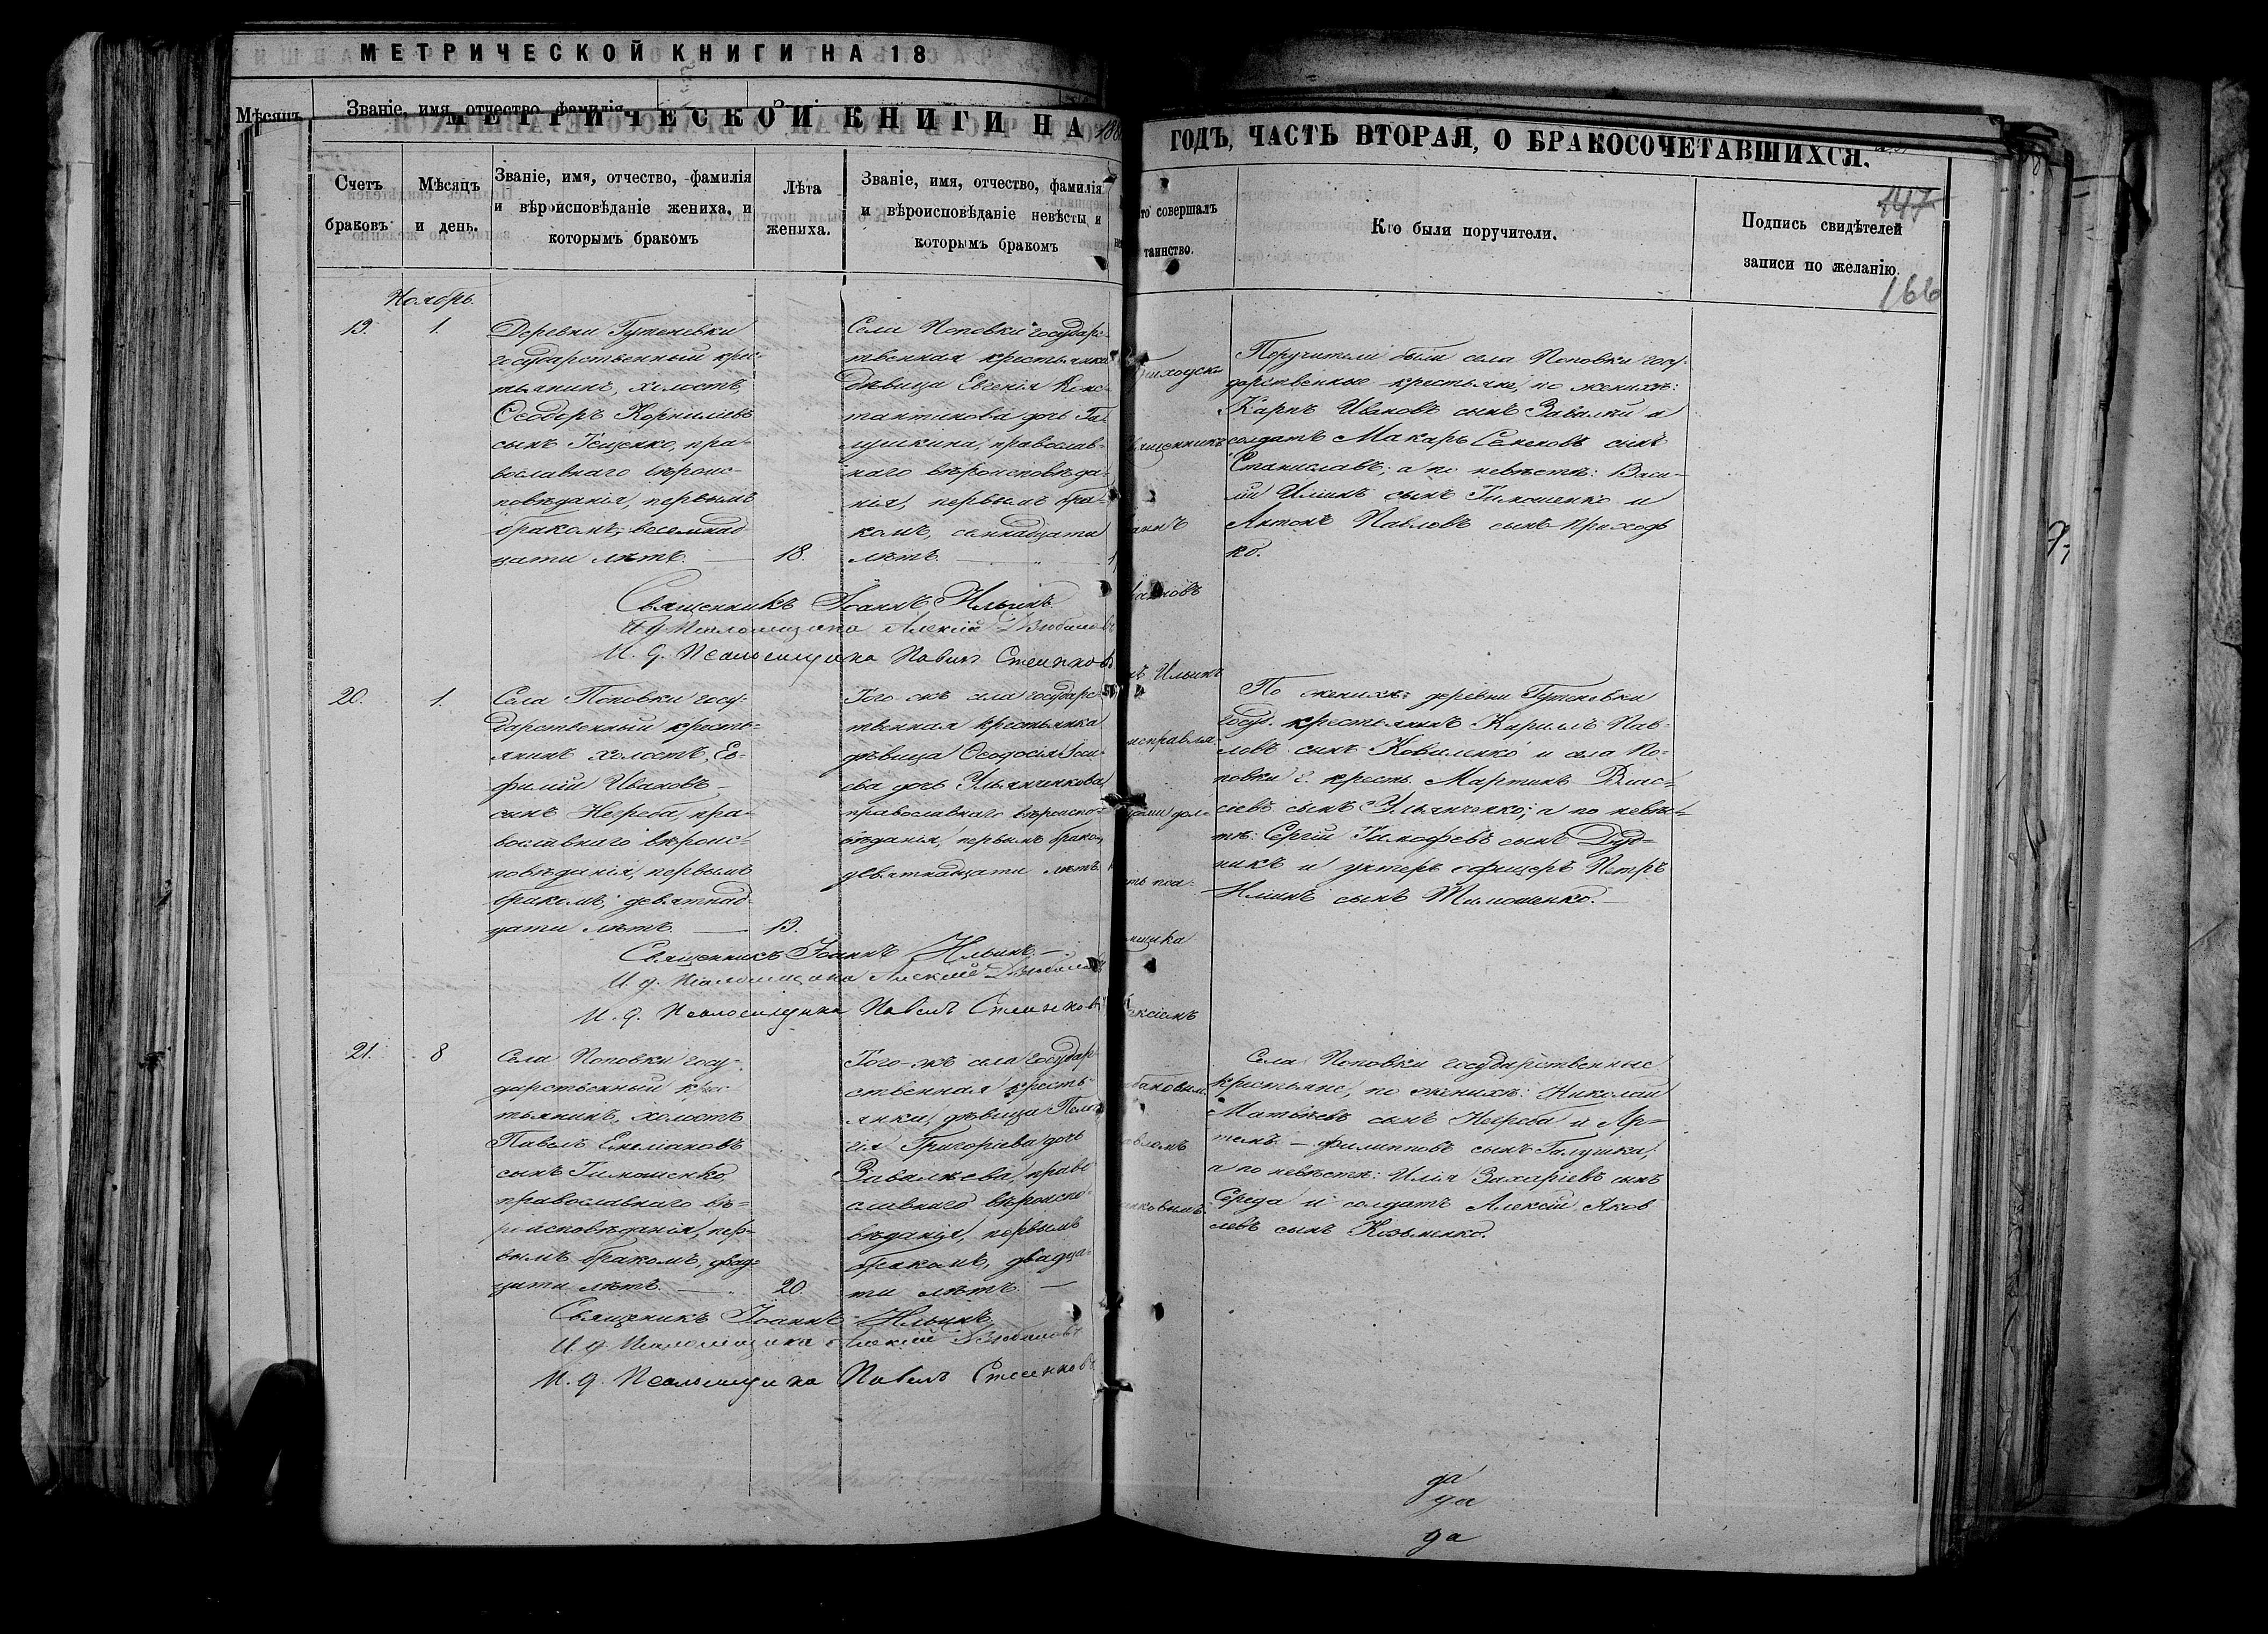 МЕТРИЧЕСКОЙ КНИГИ НА 18
Мѣсяцъ
Званіе, имя, отчество, фамилія
МЕТРИЧЕСКОЙ КНИГИ НА 188
ГОДЪ, ЧАСТЬ ВТОРАЯ, О БРАКОСОЧЕТАВШИХСЯ.
Счетъ браковъ
Мѣсяцъ и день.
Званіе, имя, отчество, фамилія
и вѣроисповѣданіе жениха, и
которымъ бракомъ
Лѣта
жениха.
Званіе, имя, отчество, фамилія
и вѣроисповѣданіе невѣсты и
которымъ бракомъ
то совершалъ
таинство.
Кто были поручители.
Подпись свидѣтелей
записи по желанію.
147
166
Ноябрь.
19.
1.
Деревни Гутеневки
государственный крес-
тьянинъ, холостъ,
Ѳеодоръ Корниліевъ
сынъ Гещенко, пра-
вославнаго вѣроис-
повѣданія, первымъ
бракомъ, восемнад-
цати лѣтъ.
18.
Села Поповки государс-
твенная крестьянка
дѣвица Евгенія Конс-
тантинова дочь Га-
лушкина, православ-
наго вѣроисповѣда-
нія, первымъ бра-
комъ, семнадцати
лѣтъ
Приходск
вященникъ
аннъ
Поручители были села Поповки госу-
дарственные крестьяне, по женихѣ:
Карпъ Ивановъ сынъ Завалки и
солдатъ Макаръ Семеновъ сынъ
Станиславъ; а по невѣстѣ: Васи-
лій Ильинъ сынъ Тимошенко и
Антонъ Павловъ сынъ Приходь
ко.
Священникъ Іоаннъ Ильинъ
И. д. Псаломщика Алексій
И. д. Псаломщика Павелъ
ъ Ильинъ
20.
1.
Села Поповки госу-
дарственный кресть-
янинъ холостъ, Ев-
фимій Ивановъ
сынъ Негреба, пра-
вославнаго вѣроис-
повѣданія, первымъ
бракомъ, девятнад-
цати лѣтъ.
19.
Того жъ села государс-
твенная крестьянка
дѣвица Ѳеодосія Іоси-
ева дочь Ульянченкова,
православнаго вѣроиспо-
вѣданія, первымъ брако-
девятнадцати лѣтъ
исправля
дол-
ть пса-
мщика
По женихѣ: деревни Гутеневки
госуд. крестьянинъ Кириллъ Пав-
ловъ сынъ Коваленко и села По-
повки г. кресть. Мартинъ Влас-
іевъ сынъ Ульянченко; а по невѣс-
тѣ: Сергій Тимофеевъ сынъ Дуд-
никъ и унтеръ офицеръ Петръ
Ильинъ сынъ Тимошенко.
Священникъ Іоаннъ Ильинъ.
И. д. Псаломщика Алексій
И. д. Псаломщика Павелъ
ексіемъ
21.
8
Села Поповки госу-
дарственный крес-
тьянинъ, холостъ
Павелъ Емеліановъ
сынъ Тимошенко,
православнаго вѣ-
роисповѣданія, пер-
вымъ бракомъ, двад-
цати лѣтъ.
20.
Того-жъ села государ-
ственная кресть-
янка, дѣвица Пела-
гія Григоріева дочь
Завалкева, право
славнаго вѣроиспо-
вѣданія, первымъ
бракомъ, двадца-
ти лѣтъ
бановым
авломъ
енковымъ
Села Поповки государственные
крестьяне, по женихѣ: Николай
Матвѣевъ сынъ Негреба и Ар-
темъ Филипповъ сынъ Галушка;
а по невѣстѣ: Илія Захаріевъ сынъ
Середа и солдатъ Алексій Яков
левъ сынъ Козьменко.
Священикъ Іоаннъ Ильинъ
И. д. Псаломщика Алексій
И. д. Псаломщика Павелъ
да
да
да